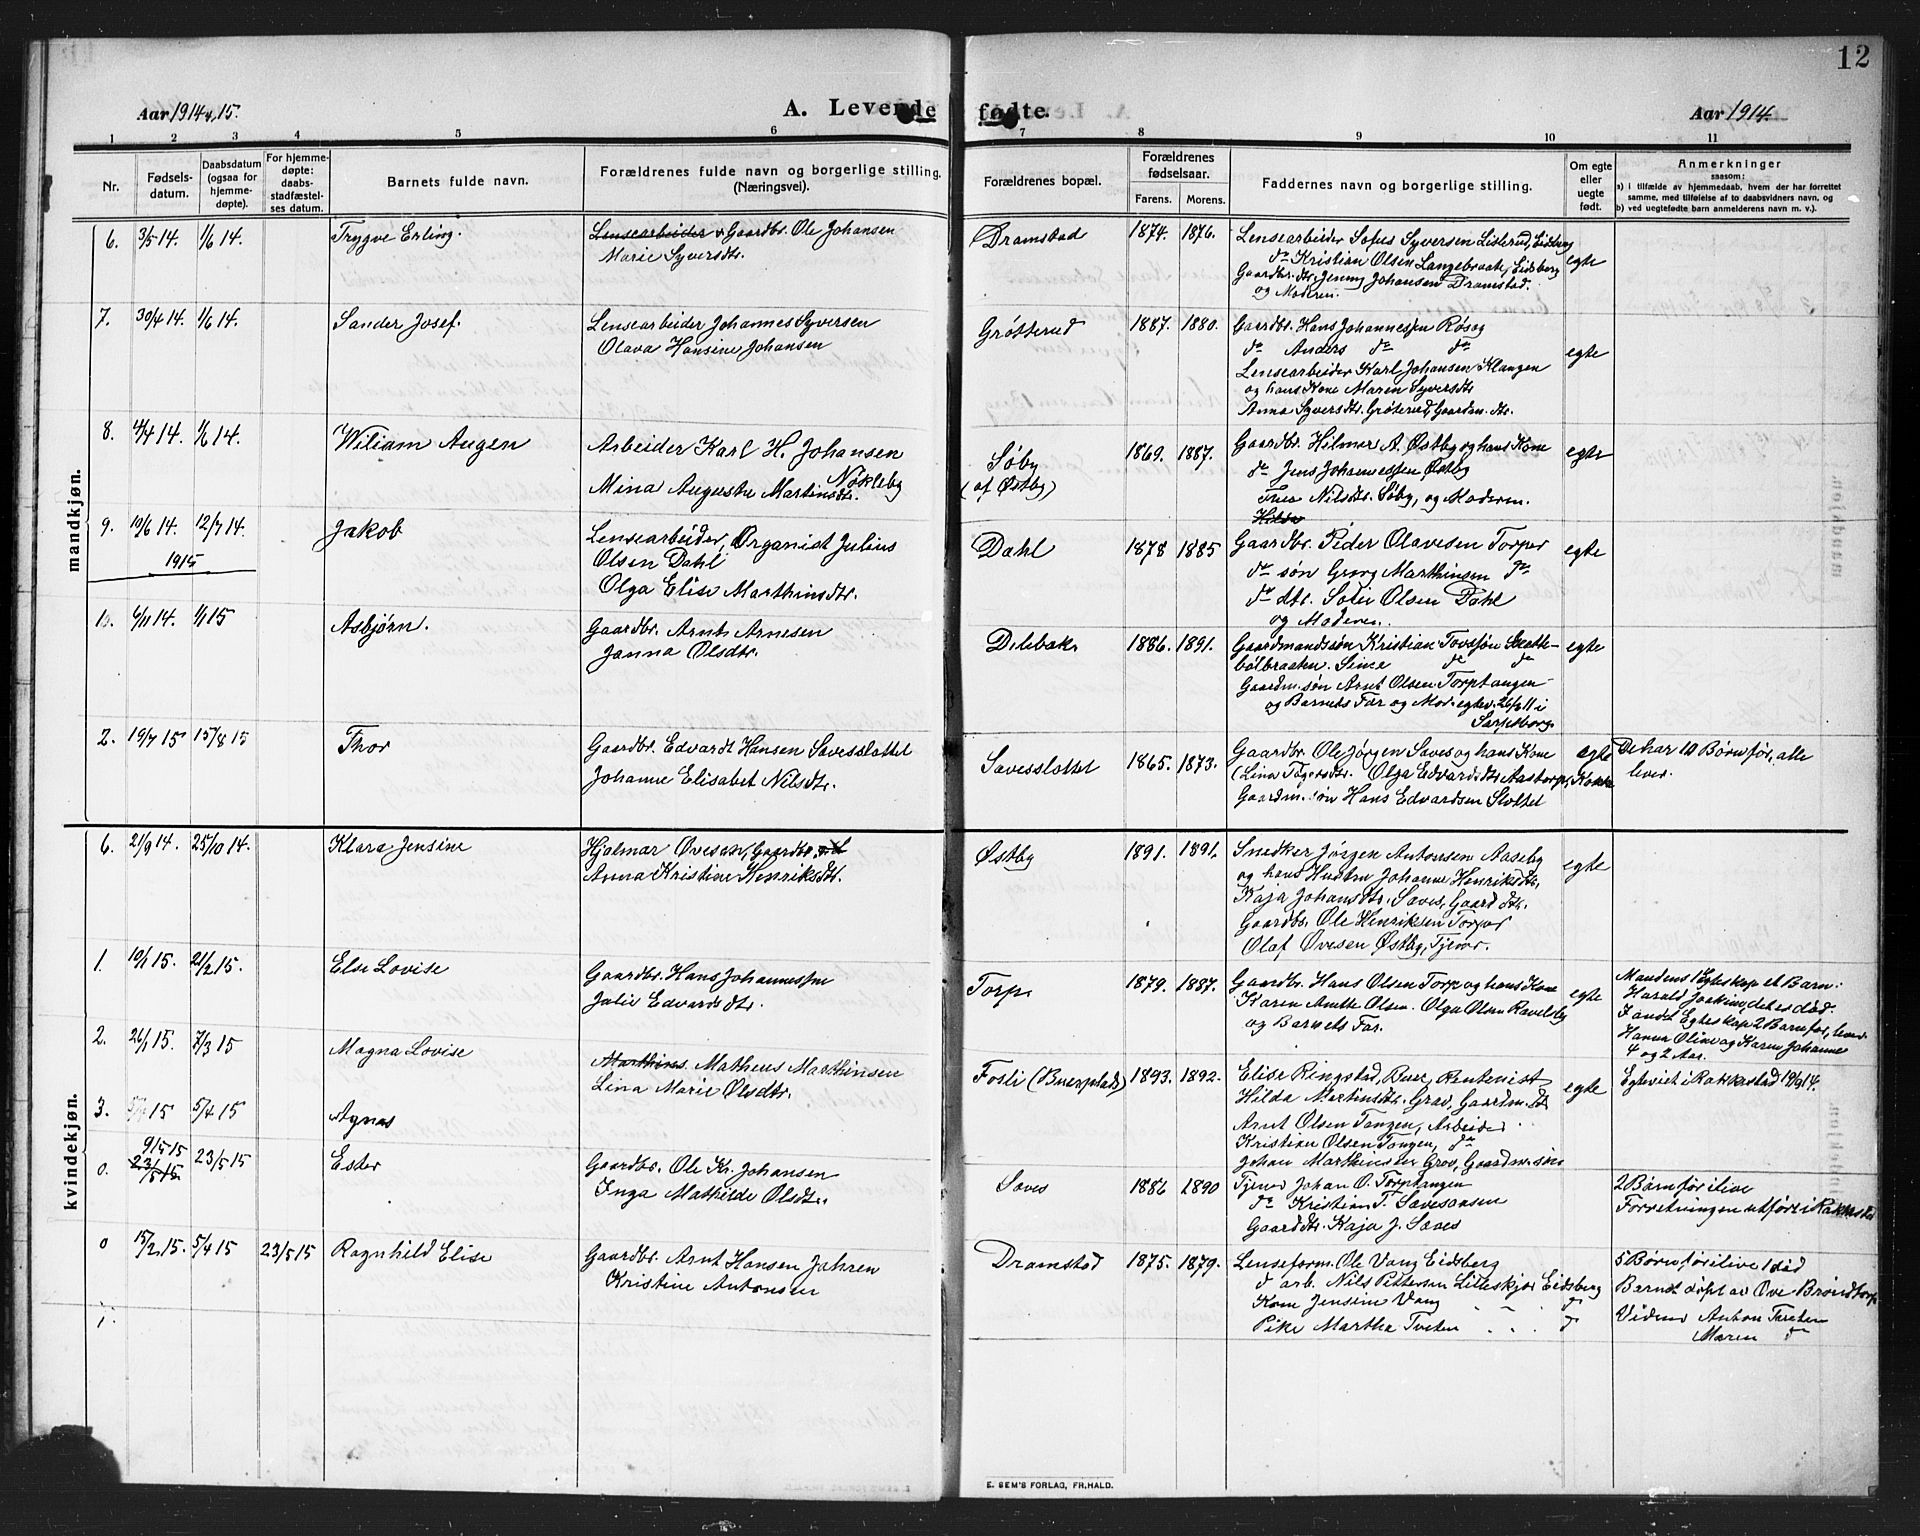 12
Aar 1914 & 15.
A. Levende fødte.
Aar 1914.
1 2 3 4 5 6 7 8 9 10 11
Nr.
Fødsels-
datum.
Daabsdatum
(ogsaa for
hjemme-
døpte).
For hjemme-
døpte:
daabs-
stadfæstel-
ses datum.
Barnets fulde navn.
Forældrenes fulde navn og borgerlige stilling.
(Næringsvei).
Forældrenes bopæl.
Forældrenes
fødselsaar.
Farens. Morens.
Faddernes navn og borgerlige stilling.
Om egte
eller
uegte
født.
Anmerkninger
saasom:
a) i tilfælde av hjemmedaab, hvem der har forrettet
samme, med tilføielse af to daabsvidners navn, og
b) ved uegtefødte barn anmelderens navn m. v.).
mandkjøn.
6. 3/5 14. 1/6 14. Trygve Erling.
Lensearbeider & Gaardbr. Ole Johansen
Marie Syversdtr.
Dramstad 1874. 1876.
Lensearbeider Sofus Syversen Listerud, Eidsberg
do Kristian Olsen Langebraate, Eidsberg
Gaardbr. dtr. Jenny Johansen Dramstad.
og Moderen.
egte
7. 30/4 14. 1/6 14. Sander Josef.
Lensearbeider Johannes Syversen
Olava Hansine Johansen
Grøtterud 1887. 1880.
Gaardbr. Hans Johannessen Røsog
do Anders do do
Lensearbeider Karl Johansen Klangen
og hans Kone Maren Syversdtr
Anna Syversdtr. Grøterud, Gaardm. dtr.
egte
8. 4/4 14. 1/6 14. Wiliam Augen
Arbeider Karl H. Johansen
Nökleby
Mina Auguste Martinsdtr.
Søby
(af Østby)
1869. 1887.
Gaardbr. Hilmar A. Østby og hans Kone
do Jens Johannessen Østby
Thea Nilsdtr. Søby, og Moderen.
Hilda
egte
9. 10/6 14. 12/7 14. Jakob
Lensearbeider, Organist Julius
Olsen Dahl
Olga Elise Marthinsdtr.
Dahl 1878 1885
Gaardbr. Peder Olavesen Torper
do søn Georg Marthinsen do
do dtr. Sofie Olsen Dahl
og Moderen.
egte
1915
6/11 14. 1/1 15 Asbjørn.
Gaardbr. Arnt Arnesen
Janna Olsdtr.
Delebak. 1886. 1891.
Gaardmandssøn Kristian
bølbraaten. Sina do do
Gaardm. søn Arnt Olsen Torptangen
og Barnets Far og Mor. egtev. 26/11 i
Sarpsborg.
egte
2. 19/7 15 15/8 15 Thor
Gaardbr. Edvardt Hansen Savesslottet
Johanne Elisabet Nilsdtr.
Savesslottet 1865. 1873.
Gaardbr. Ole Jørgen Saves og hans Kone
(Lina Tøgersdtr. Olga Edvardsdtr Aastorp, Kokke
Gaardm. søn Hans Edvardsen Slottet
egte
De har 10 Børn før, alle
lever.
kvindekjøn.
6. 21/9 14. 25/10 14. Klara Jensine
Hjalmar Ovesen, Gaardbr.
Anna Kristine Henriksdtr.
Østby 1891. 1891.
Snedker Jørgen Antonsen Aaseby
og hans Hustru Johanne Henriksdtr,
Kaja Johansdtr. Saves, Gaard dtr.
Gaardbr. Ole Henriksen Torper
Olaf Ovesen Østby, Tjener.
egte
1. 10/1 15. 21/2 15. Else Lovise
Gaardbr. Hans Johannessen
Julie Edvardsdtr.
Torp. 1879. 1887.
Gaardbr. Hans Olsen Torp og hans Kone
Karen Anette Olsen. Olga Olsen Ravelsby
og Barnets Far.
egte
Mandens 1 Egteskap et Barn:
Harald Joakim, det er död.
I andet Egteskap 2 Barn før, lever
Hanna Oline og Karen Johanne
4 og 2 Aar.
2. 26/1 15. 7/3 15 Magna Lovise
Marthines Matheus Marthinsen
Lina Marie Olsdtr.
Fosli (Buerplads) 1893. 1892.
Elise Ringstad, Buer, Rentenist
Hilda Martinsdtr. Grav, Gaardm. dtr
Arnt Olsen Tangen, Arbeider
Kristian Olsen Tangen, do
Johan Marthinsen Grav, Gaardm. søn
egte
Egteviet i Rakkestad 19/9 14.
3. 15 5/4 15 Agnes
0. 9/5 15 23/5 15 23/5 15 Ester
Gaardbr. Ole Kr. Johansen
Inga Mathilde Olsdtr.
Saves 1886 1890
Tjener Johan O. Torptangen
do Kristian T. Savesaasen
Gaarddtr. Kaja J. Saves
2 Børn før ilive
Forretningen utført i Rakkestad
0 15/2 15. 5/4 15 23/5 15 Ragnhild Elise
Gaardbr. Arnt Hansen Jahren
Kristine Antonsen
Dramstad 1875. 1879.
Lenseform. Ole Vang Eidsberg
d arb. Nils Pettersen Lilleskjør Eidsberg
Kone Jensine Vang " " d
Pike Martha Tveten " " d
5 Børn før ilive 1 död
Berndt døpt av Ove Brøndtorp
Vidner Anton Tveten
Maren do
E. SEM'S FORLAG, FR.HALD.